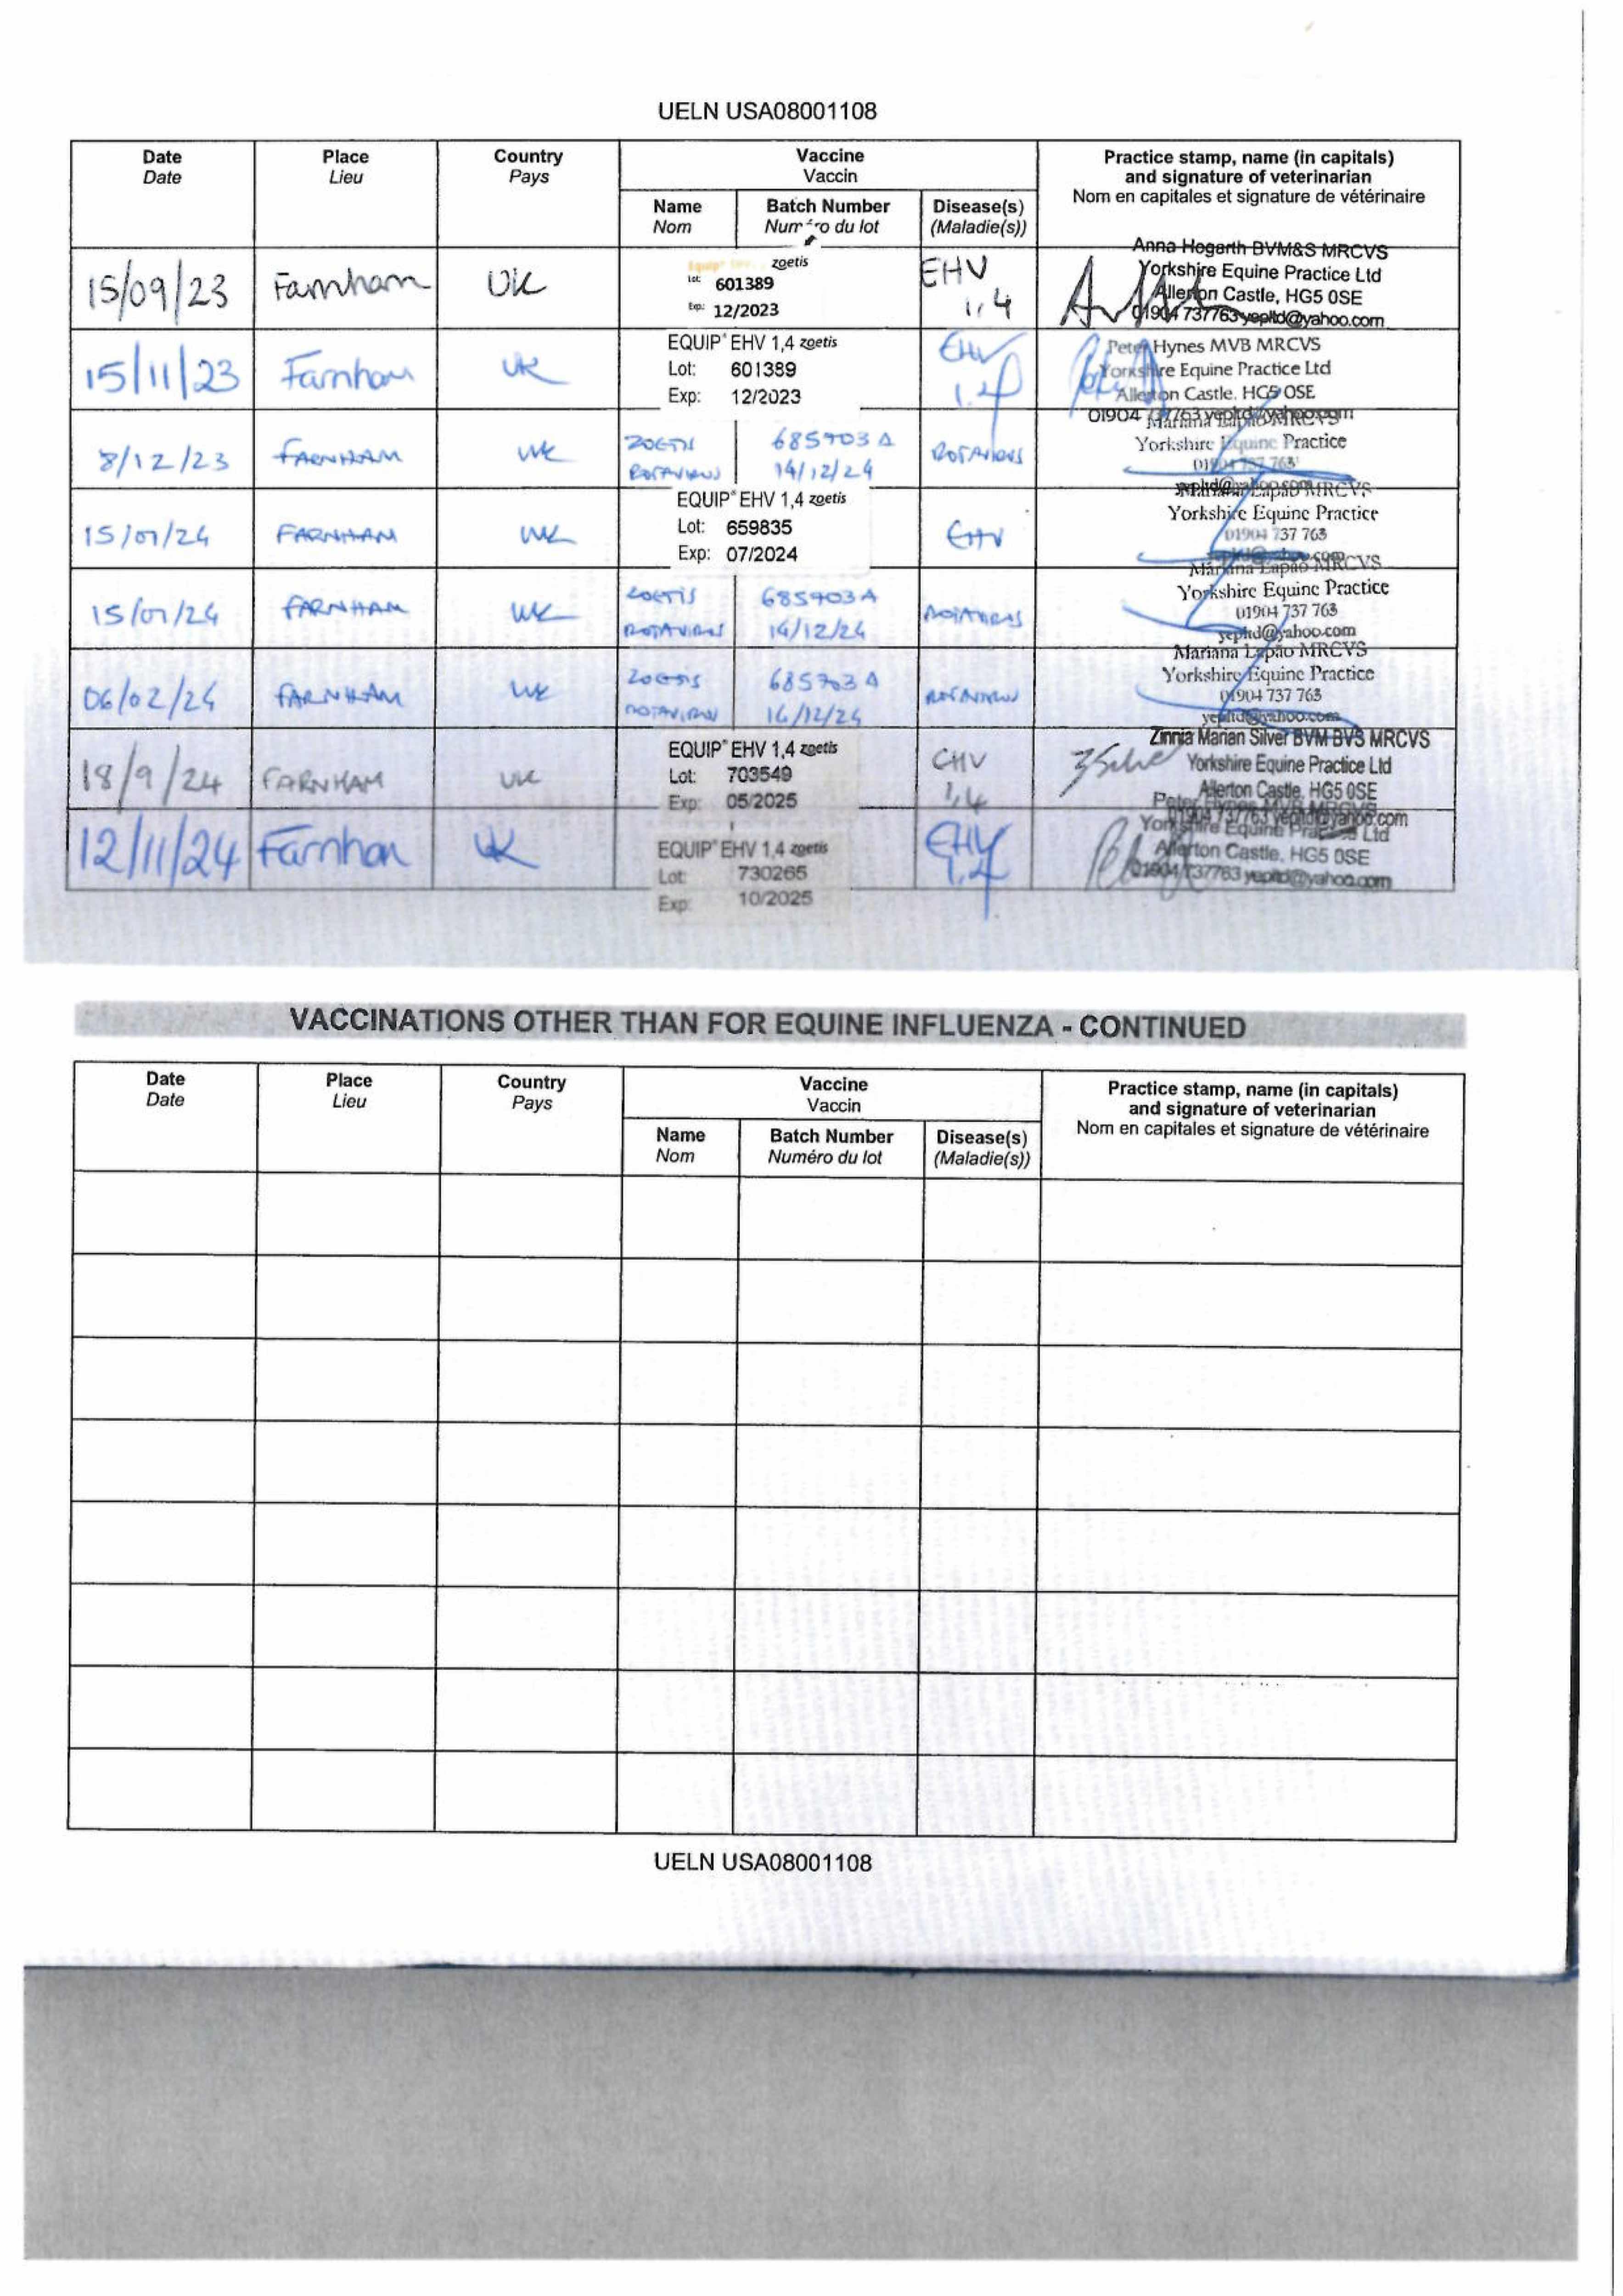 UELN USA08001108
Date Place Country Vaccine Practice stamp, name (in capitals)
Date Lieu Pays Vaccin and signature of veterinarian
Nom en capitales et signature de vétérinaire
Name Batch Number Disease(s)
Nom Numéro du lot (Maladie(s))
15/09/23 Farnham UK
zoetis
Lot: 601389
Exp: 12/2023
EHV
1,4
Anna Hogarth BVM&S MRCVS
Yorkshire Equine Practice Ltd
Allerton Castle, HG5 0SE
01904 737763 yepltd@yahoo.com
15/11/23 Farnham UK
EQUIP® EHV 1,4 zoetis
Lot: 601389
Exp: 12/2023
EHV
1,4
Peter Hynes MVB MRCVS
Yorkshire Equine Practice Ltd
Allerton Castle, HG5 0SE
01904 737763 yepltd@yahoo.com
8/12/23 FARNHAM UK
ZOETIS 685703A
ROTAVIRUS 14/12/24
ROTAVIRUS
Mariana Lapão MRCVS
Yorkshire Equine Practice
01904 737 763
yepltd@yahoo.com
15/01/24 FARNHAM UK
EQUIP® EHV 1,4 zoetis
Lot: 659835
Exp: 07/2024
EHV
Mariana Lapão MRCVS
Yorkshire Equine Practice
01904 737 763
yepltd@yahoo.com
15/01/24 FARNHAM UK
ZOETIS 685703A
ROTAVIRUS 14/12/24
ROTAVIRUS
Mariana Lapão MRCVS
Yorkshire Equine Practice
01904 737 763
yepltd@yahoo.com
06/02/24 FARNHAM UK
ZOETIS 685703A
ROTAVIRUS 14/12/24
ROTAVIRUS
Mariana Lapão MRCVS
Yorkshire Equine Practice
01904 737 763
yepltd@yahoo.com
18/9/24 FARNHAM UK
EQUIP® EHV 1,4 zoetis
Lot: 703549
Exp: 05/2025
EHV
1,4
ZSilver
Zinnia Marian Silver BVM BVS MRCVS
Yorkshire Equine Practice Ltd
Allerton Castle, HG5 0SE
01904 737763 yepltd@yahoo.com
12/11/24 Farnham UK
EQUIP® EHV 1,4 zoetis
Lot: 730265
Exp: 10/2025
EHV
1,4
Peter Hynes MVB MRCVS
Yorkshire Equine Practice Ltd
Allerton Castle, HG5 0SE
01904 737763 yepltd@yahoo.com
VACCINATIONS OTHER THAN FOR EQUINE INFLUENZA - CONTINUED
Date Place Country Vaccine Practice stamp, name (in capitals)
Date Lieu Pays Vaccin and signature of veterinarian
Nom en capitales et signature de vétérinaire
Name Batch Number Disease(s)
Nom Numéro du lot (Maladie(s))
UELN USA08001108